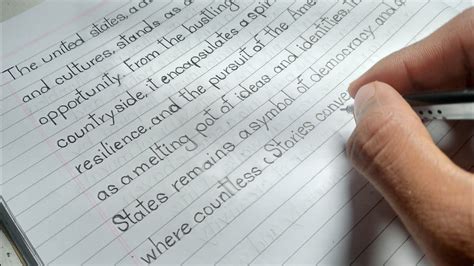 The united states, a
and cultures, stands as a
opportunity. From the bustling
countryside, it encapsulates a spir
resilience, and the pursuit of the Ame
as a melting pot of ideas and identities, th
States remains a symbol of democracy and
where countless Stories conve